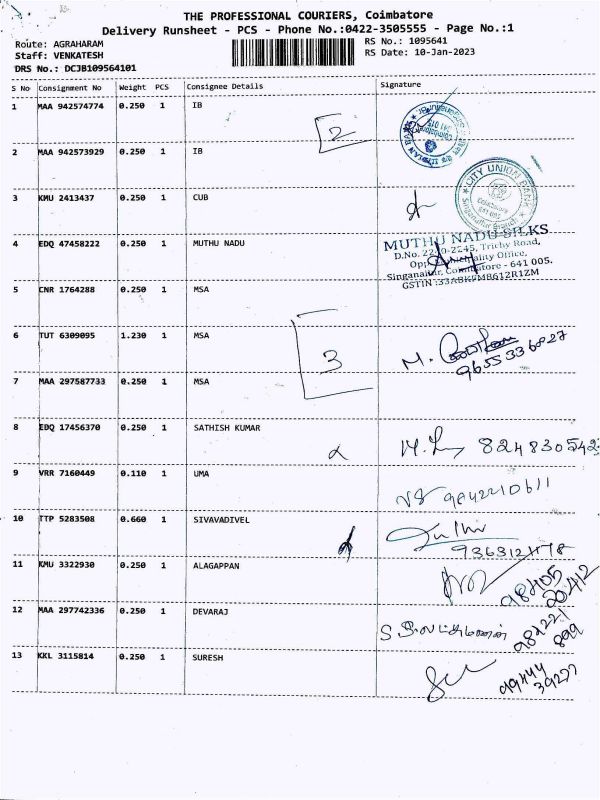 THE PROFESSIONAL COURIERS, Coimbatore
Delivery Runsheet - PCS - Phone No.:0422-3505555 - Page No.:1
Route: AGRAHARAM
RS No.: 1095641
Staff: VENKATESH
RS Date: 10-Jan-2023
DRS No.: DCJB109564101
S No Consignment No Weight PCS Consignee Details Signature
1 MAA 942574774 0.250 1 IB
2
2 MAA 942573929 0.250 1 IB
CITY UNION BANK
3 KMU 2413437 0.250 1 CUB
4 EDQ 47458222 0.250 1 MUTHU NADU
MUTHU NADU SILKS
D.No. 2240-2245, Trichy Road,
Opp. Municipality Office,
Singanallur, Coimbatore - 641 005.
GSTIN :
5 CNR 1764288 0.250 1 MSA
6 TUT 6309095 1.230 1 MSA
3
M.
9655336027
7 MAA 297587733 0.250 1 MSA
8 EDQ 17456370 0.250 1 SATHISH KUMAR
8248305423
9 VRR 7160449 0.110 1 UMA
9842210611
10 TTP 5283508 0.660 1 SIVAVADIVEL
11 KMU 3322930 0.250 1 ALAGAPPAN
98405
20412
12 MAA 297742336 0.250 1 DEVARAJ
984221
899
13 KKL 3115814 0.250 1 SURESH
99444
39277